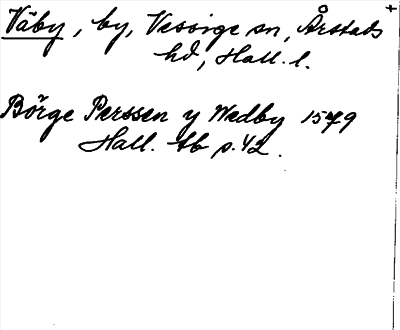 Väby, by, Vessige sn, Årstads
hd, Hall. l.
Börge Perssen y Wedby 1579
Hall. tb p. 42.